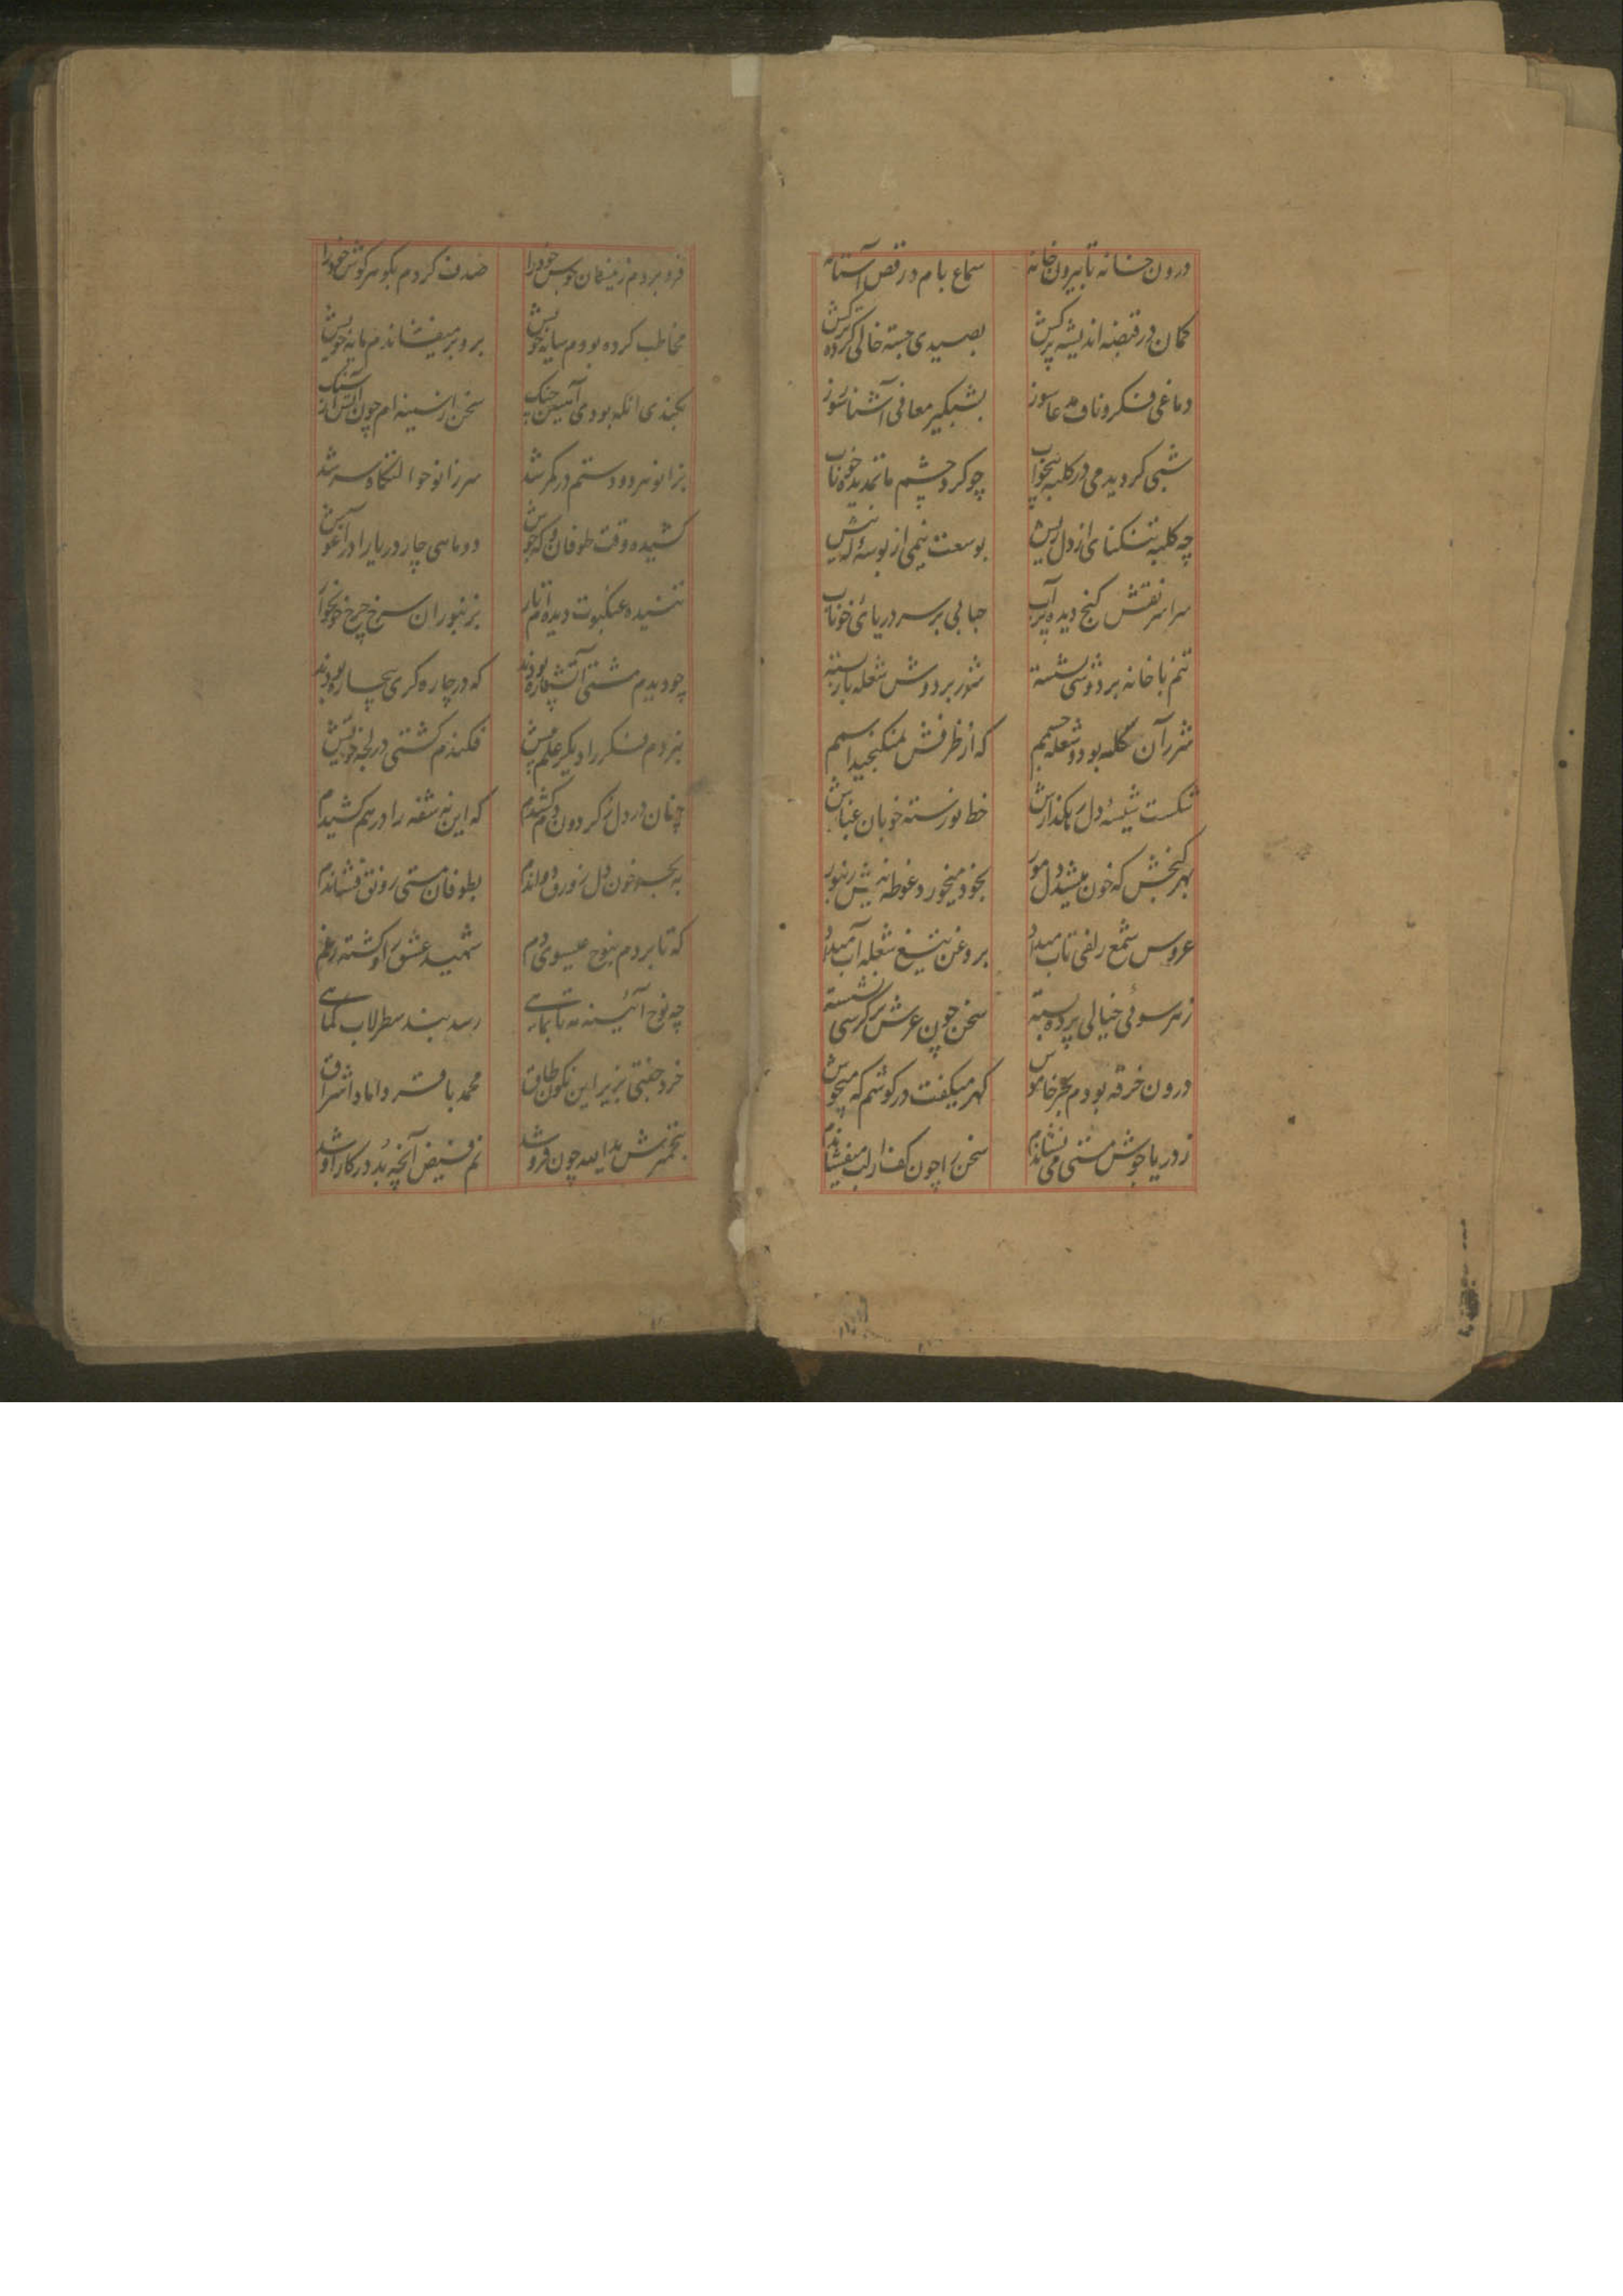 درون خانه تا بیرون خانه سماع بام در رقص آستانه
کمان در قبضه اندیشه پرکش بصیدی جسته خالی کرده ترکش
دماغی فکر و ناف مدعا سوز بشبکیر معانی آشنا سوز
شبی کردیدمی در کلبه بیخواب چو کرد چشم ماتمدیده خوناب
چه کلبه تنکنای از دل ریش بوسعت نیمی از بوسه
سراسر نقش کنج دیده پرآب حبابی بر سر دریائ خوناب
تنم با خانه بر دوشی نشسته شرر بر دوش شعله بار بسته
شرر آن کلبه بود و شعله جسمم که از ظرفش نمیکنجید اسمم
شکست شیشهٔ دل خط نورسته خوبان
بهر کنجش که خون میشد دل مور بخود میخورد غوطه نیش زنبور
عروس شمع زلفی تاب میداد بروغن تیغ شعله آب میداد
ز هر سوئی خیالی پرده بسته سخن چون عرش بر کرسی نشسته
درون خرقه بودم بحر خاموش کهر میکفت در کوشم که میجوش
ز دریا جوش مستی می نشاندم سخن را چون کف از لب میفشاندم
فرو بردم خود را صدف کردم بکوهر کوش خود را
مخاطب کرده بودم سایه خویش برو بر میفشاندم مایه خویش
بکندی انکه بودمی سخن از سینه ام چون آتش از سنک
بزانو هر دو دستم در کمر شد سر زانو حوالتکاه سر شد
کشیده وقت طوفان دو ماهی چار دریا را در آغوش
تنیده عنکبوت دیده ام تار بزنبوران سرخ چرخ خونخوار
چو دیدم مشتی آتشپاره بودند که در چاره کری بیچاره بودند
بزدم فکر را دیکر فکندم کشتی در لجه خویش
چنان در دل ز کردون دم کشیدم که این نه شقه را در هم کشیدم
به بحر خون دل زورق دواندم بطوفان مستی رونق فشاندم
که تا بردم بنوح عیسوی دم شهید عشق را و کشته غم
چه نوح آئینه مه تا بماهی رسد بند سطرلاب کماهی
خرد جفتی بزیر این نکون طاق محمد باقر داماد اشراق
بتخمیرش ید الله چون فرو شد نم فیض آنچه بُد در کار او شد